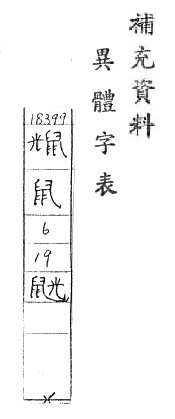 補充資料
異體字表
18399
⿰光鼠
鼠
6
19
⿺鼠光